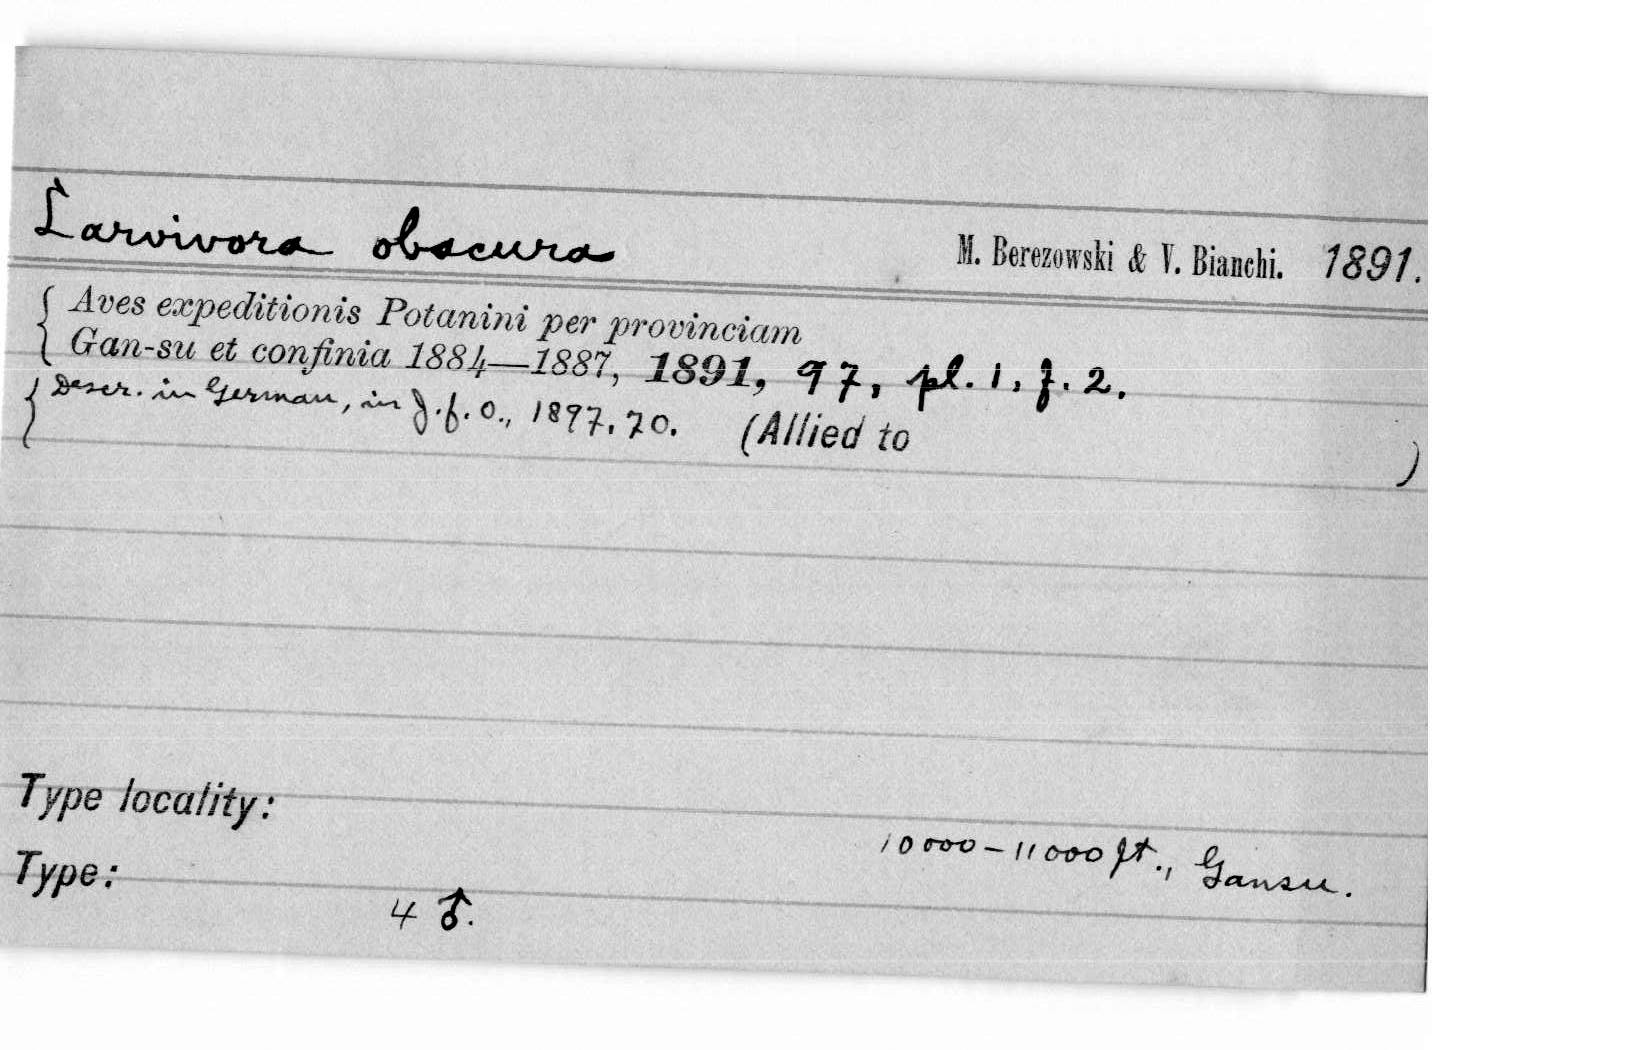 Larvivora obscura M. Berezowski & V. Bianchi. 1891.
Aves expeditionis Potanini per provinciam
Gan-su et confinia 1884—1887, 1891, 97, pl. 1, f. 2.
Descr. in German, in J.f.O., 1897, 70. (Allied to )
Type locality: 10000-11000 ft., Gansu.
Type: 4 ♂.